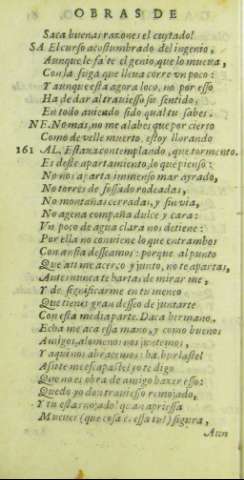 OBRAS DE
Saca buenas razones el cuytado!
SA. El curso acostumbrado del ingenio,
Aunque le falte el genio, que lo mueva,
Con la fuga que lleva corre un poco:
Y aunque esta agora loco, no por esso
Ha de dar al traviesso su sentido,
En todo aviendo sido qual tu sabes.
NE. No mas, no me alabes que por cierto
Como de velle muerto estoy llorando
161 AL. Estava contemplando, que tormento
Es deste apartamiento, lo que pienso:
No nos aparta immenso mar ayrado,
No torres de fossado rodeadas,
No montañas cerradas, y sin via,
No agena compaña dulce y cara:
Un poco de agua clara nos detiene:
Por ella no conviene lo que entrambos
Con ansia desseamos: porque al punto
Que a ti me acerco y junto, no te apartas,
Antes nunca te hartas de mirarme,
Y de significarme en tu meneo
Que tienes gran desseo de juntarte
Con esta media parte. Daca hermano,
Echa me aca essa mano, y como buenos
Amigos, alomenos nos juntemos,
Y aqui nos abracemos: ha burlaste!
Assi te me escapaste! yo te digo
Que no es obra de amigo hazer esso:
Quedo yo don traviesso remojado,
Y tu estas enojado! quan apriessa
Mueves (que cosa es essa tu!) figura,
Aun